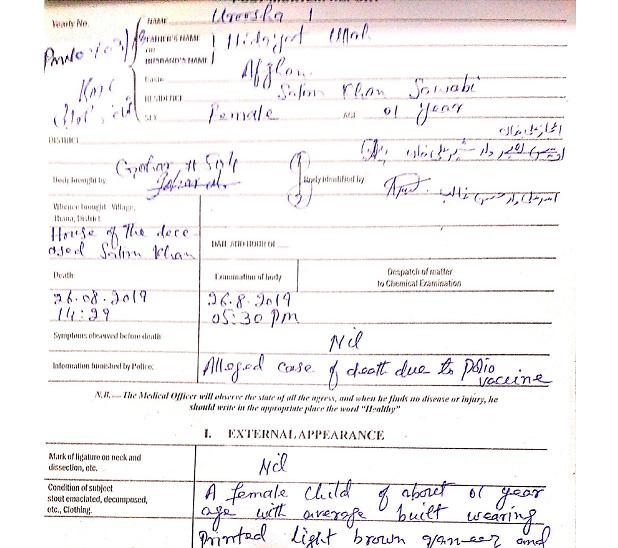 POST-MORTEM REPORT
Yearly No.
NAME Uroosha
FATHER'S NAME
OR
HUSBAND'S NAME Hidayat Ullah
Caste Afghan
RESIDENCE Salim Khan Sawabi
SEX Female AGE 01 year
DISTRICT
Body brought by Gohar # 504
Body identified by
Whence brought Village,
Thana, District
House of the dece
ased Salim Khan
DATE AND HOUR OF
Death Examination of body Despatch of matter
to Chemical Examination
26.08.2019 26.8.2019
14:29 05:30 Pm
Symptoms observed before death Nil
Information furnished by Police. Alleged case of death due to Polio
vaccine
N.B.— The Medical Officer will observe the state of all the ogress, and when he finds no disease or injury, he
should write in the appropriate place the word "Healthy"
I. EXTERNAL APPEARANCE
Mark of ligature on neck and
dissection, etc. Nil
Condition of subject
stout emaciated, decomposed,
etc., Clothing.
A female Child of about 01 year
age with average built wearing
Printed light brown qameez and